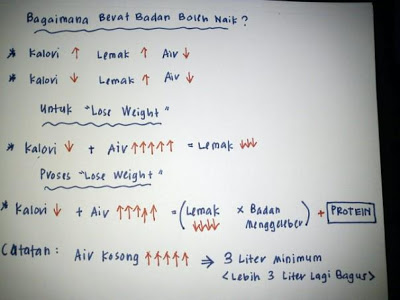 Bagaimana Berat Badan Boleh Naik?
* Kalori ↑ Lemak ↑ Air ↓
* Kalori ↓ Lemak ↑ Air ↓
Untuk "Lose Weight"
* Kalori ↓ + Air ↑↑↑↑↑ = Lemak ↓↓↓
Proses "Lose Weight"
* Kalori ↓ + Air ↑↑↑↑↑ = (Lemak ↓↓↓↓ × Badan Menggeleber) + PROTEIN
Catatan: Air Kosong ↑↑↑↑↑ ⇒ 3 Liter Minimum
<Lebih 3 Liter Lagi Bagus>